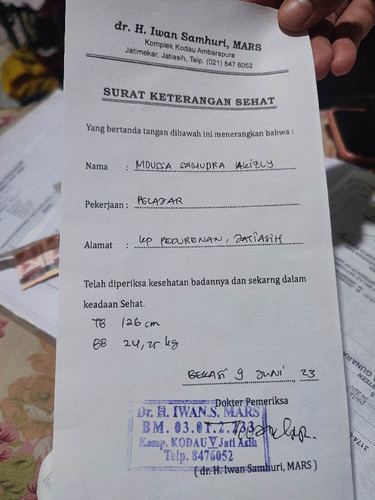 dr. H. Iwan Samhuri, MARS
Komplek Kodau Ambarapura
Jatimekar, Jatiasih, Telp. (021) 847 6052
SURAT KETERANGAN SEHAT
Yang bertanda tangan dibawah ini menerangkan bahwa :
Nama : MOUSSA SAMUDRA
Pekerjaan : PELAJAR
Alamat : KP PEDURENAN, JATIASIH
Telah diperiksa kesehatan badannya dan sekarng dalam
keadaan Sehat.
TB 126 cm
BB 24,25 kg
BEKASI 9 JUNI, 23
Dokter Pemeriksa
Dr. H. IWAN.S. MARS
BM. 03.01.2.733
Komp. KODAU V Jati Asih
Telp. 8476052
( dr. H. Iwan Samhuri, MARS )